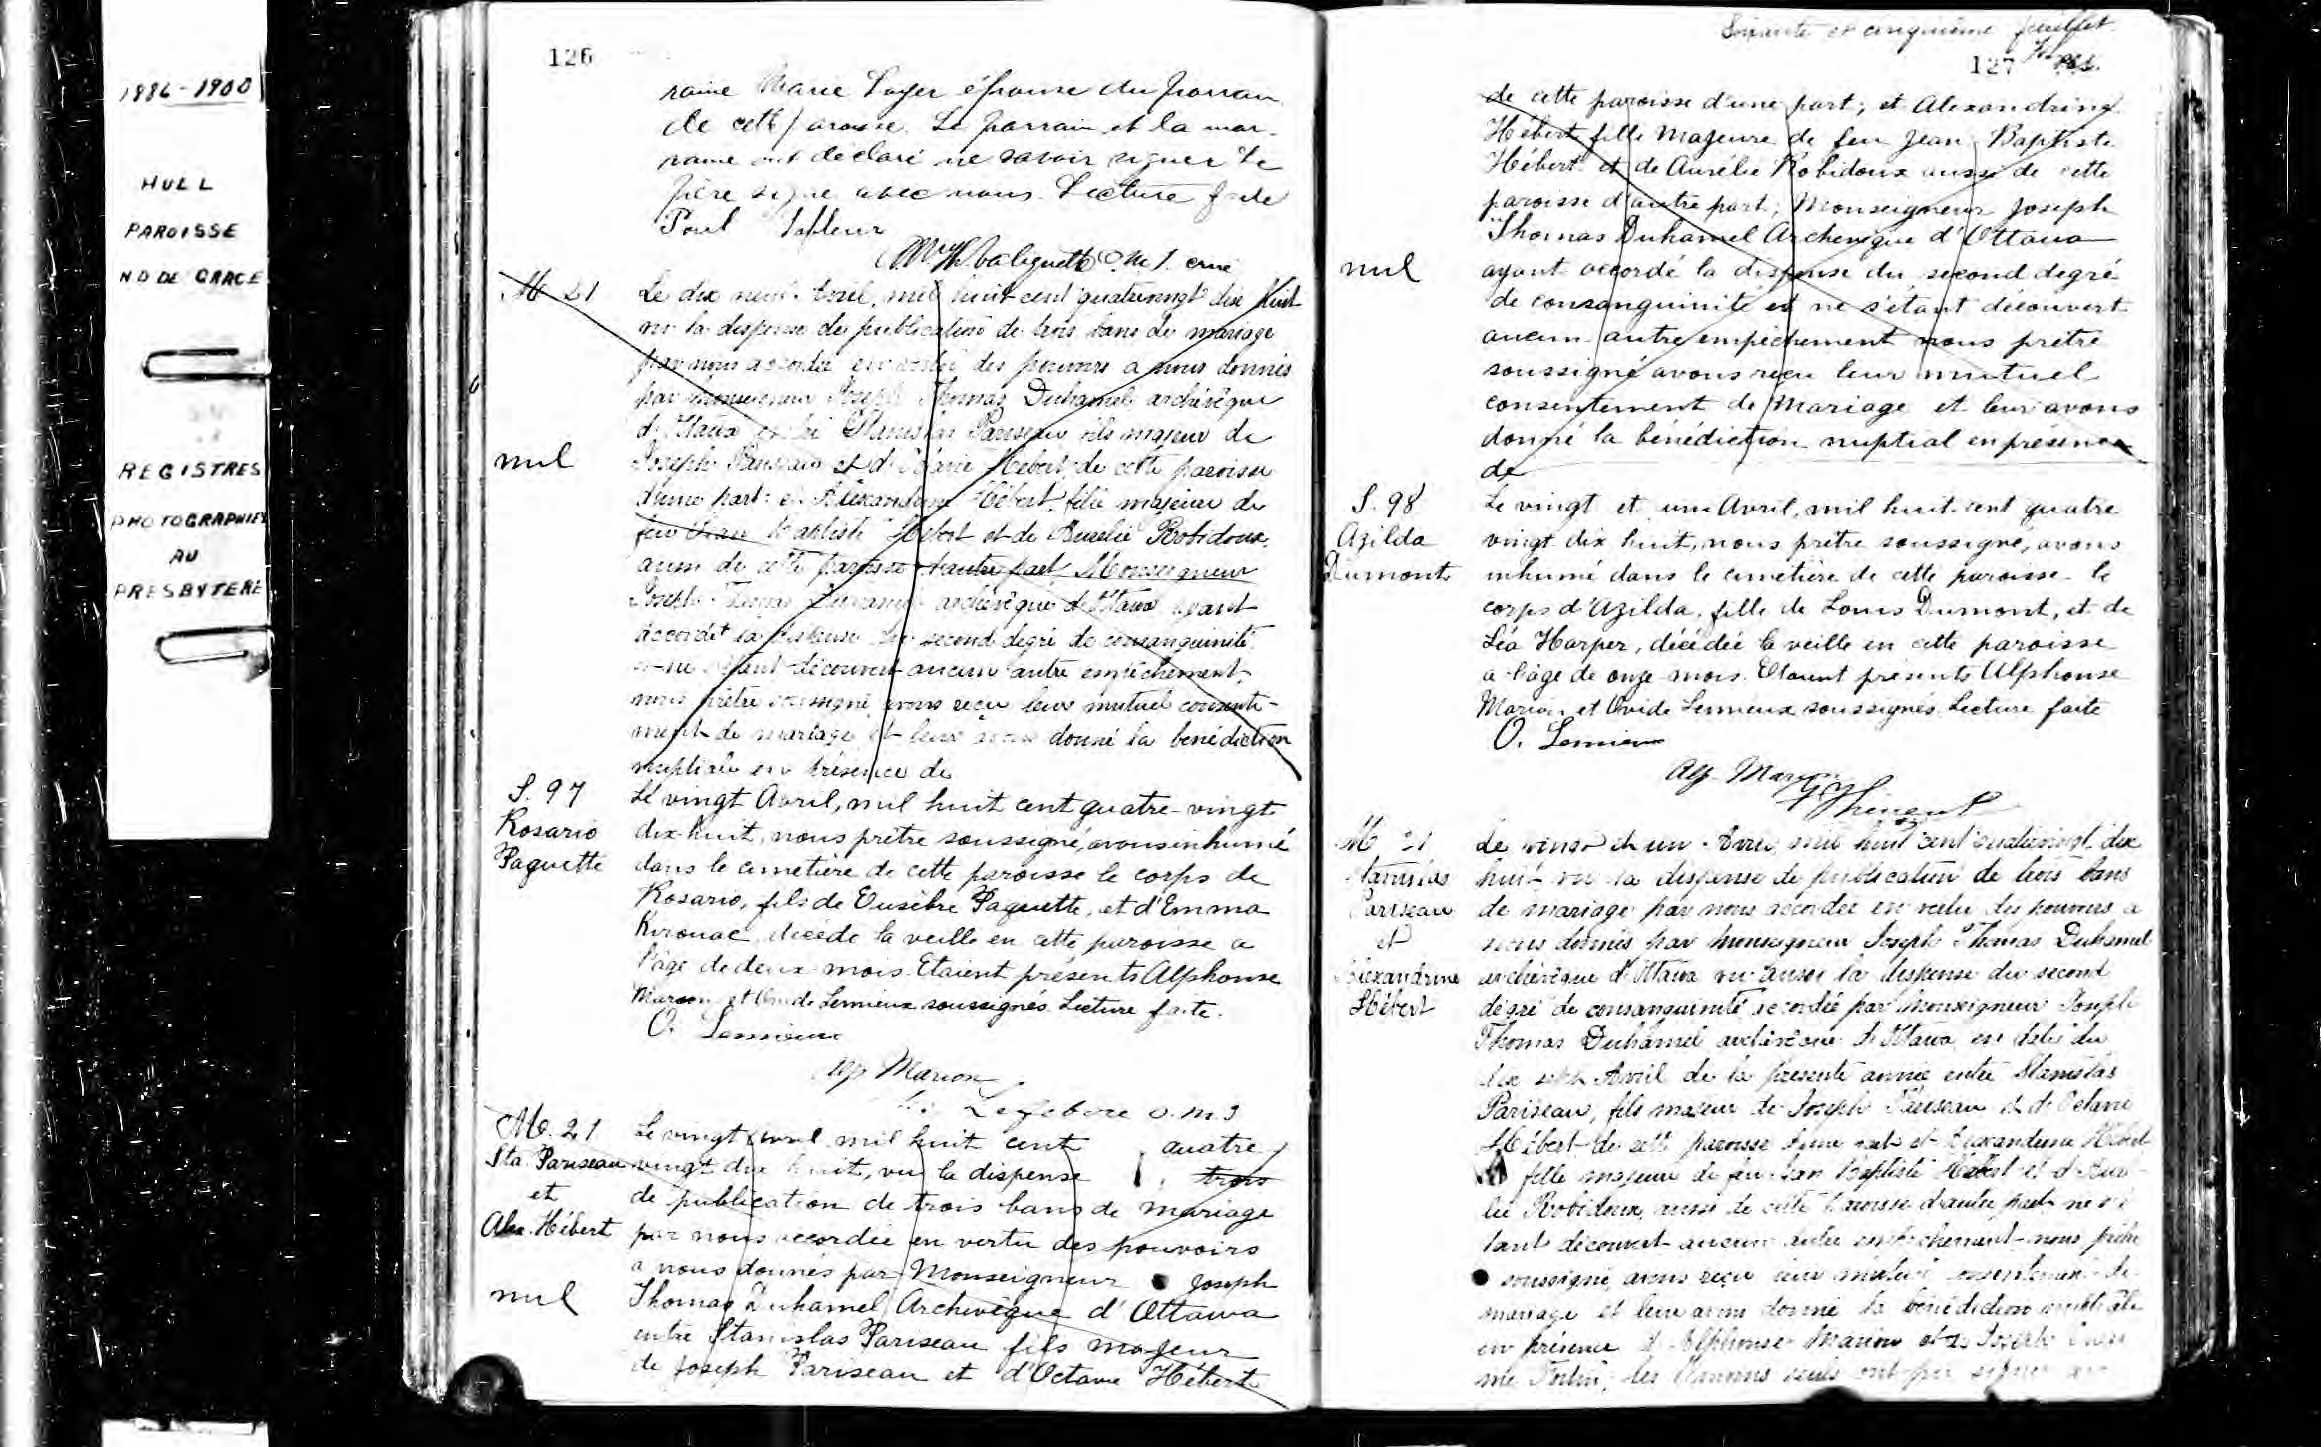 1886-1900
HULL
PAROISSE
N D DE GRACE
REGISTRES
PHOTOGRAPHIES
AU
PRESBYTERE
126
raine Marie Loyer épouse du parrain
de cette paroisse. Le parrain et la mar-
raine ont déclaré ne savoir signer le
père signe avec nous. Lecture faite
Paul Lafleur
O.M.I. curé
M 21
nul
Le dix neuf Avril, mil huit cent quatrevingt dix huit
vu la dispense de publication de trois bans de mariage
par nous accordée en vertu des pouvoirs a nous donnés
par Monseigneur Joseph Thomas Duhamel archevêque
d'Ottawa entre Stanislas Pariseau fils majeur de
Joseph Pariseau et d'Octavie Hébert de cette paroisse
d'une part: et Alexandrine Hébert fille majeure de
feu Jean Baptiste Hébert et de Aurelie Robidoux,
aussi de cette paroisse d'autre part Monseigneur
Joseph Thomas Duhamel archevêque d'Ottawa ayant
accordé la dispense du second degré de consanguinité
et ne s'étant découvert aucun autre empêchement,
nous prêtre soussigné avons reçu leur mutuel consente-
ment de mariage et leur avons donné la bénédiction
nuptiale en présence de
S. 97
Rosario
Paquette
Le vingt Avril, mil huit cent quatre-vingt
dix-huit, nous prêtre soussigné, avons inhumé
dans le cimetière de cette paroisse le corps de
Rosario, fils de Eusèbe Paquette, et d'Emma
Kirouac, décédé la veille en cette paroisse a
l'âge de deux mois. Etaient présents Alphonse
Marion et Ovide Lemieux soussignés. Lecture faite.
O. Lemieux
Alp Marion
Lefebvre o.m.i
M. 21
Sta. Pariseau
et
Alex. Hébert
nul
Le vingt Avril mil huit cent quatre
vingt dix huit, vu la dispense trois
de publication de trois bans de mariage
par nous accordée en vertu des pouvoirs
a nous donnés par Monseigneur Joseph
Thomas Duhamel Archevêque d'Ottawa
entre Stanislas Pariseau fils majeur
de Joseph Pariseau et d'Octavie Hébert
Soixante et cinquième feuillet
127
de cette paroisse d'une part; et Alexandrine
Hébert fille Majeure de feu Jean Baptiste
Hébert et de Aurélie Robidoux aussi de cette
paroisse d'autre part; Monseigneur Joseph
Thomas Duhamel Archevêque d'Ottawa
nul
ayant accordé la dispense du second degré
de consanguinité et ne s'étant découvert
aucun autre empêchement nous prêtre
soussigné avons reçu leur mutuel
consentement de Mariage et leur avons
donné la bénédiction nuptial en présence
de
S. 98
Azilda
Dumont
Le vingt et un Avril, mil huit cent quatre
vingt dix huit, nous prêtre soussigné, avons
inhumé dans le cimetière de cette paroisse le
corps d'Azilda, fille de Louis Dumont, et de
Léa Harper, décédée la veille en cette paroisse
a l'âge de onze mois. Etaient présents Alphonse
Marion et Ovide Lemieux soussignés. Lecture faite
O. Lemieux
Alp. Marion
M 21
Stanislas
Pariseau
et
Alexandrine
Hébert
Le vingt et un Avril mil huit cent quatrevingt dix
huit vu la dispense de publication de trois bans
de mariage par nous accordée en vertu des pouvoirs a
nous donnés par Monseigneur Joseph Thomas Duhamel
archevêque d'Ottawa vu aussi la dispense du second
degré de consanguinité accordée par Monseigneur Joseph
Thomas Duhamel archevêque d'Ottawa en date du
dix sept Avril de la présente année entre Stanislas
Pariseau, fils majeur de Joseph Pariseau et d'Octavie
Hébert de cette paroisse d'une part et Alexandrine Hébert
fille majeure de feu Jean Baptiste Hébert et d'Auré-
lie Robidoux, aussi de cette paroisse d'autre part ne s'é
tant découvert aucun autre empêchement nous prêtre
soussigné, avons reçu leur mutuel consentement de
mariage et leur avons donné la bénédiction nuptiale
en présence d'Alphonse Marion et de Joseph
Fortin, les témoins seuls ont pu signer